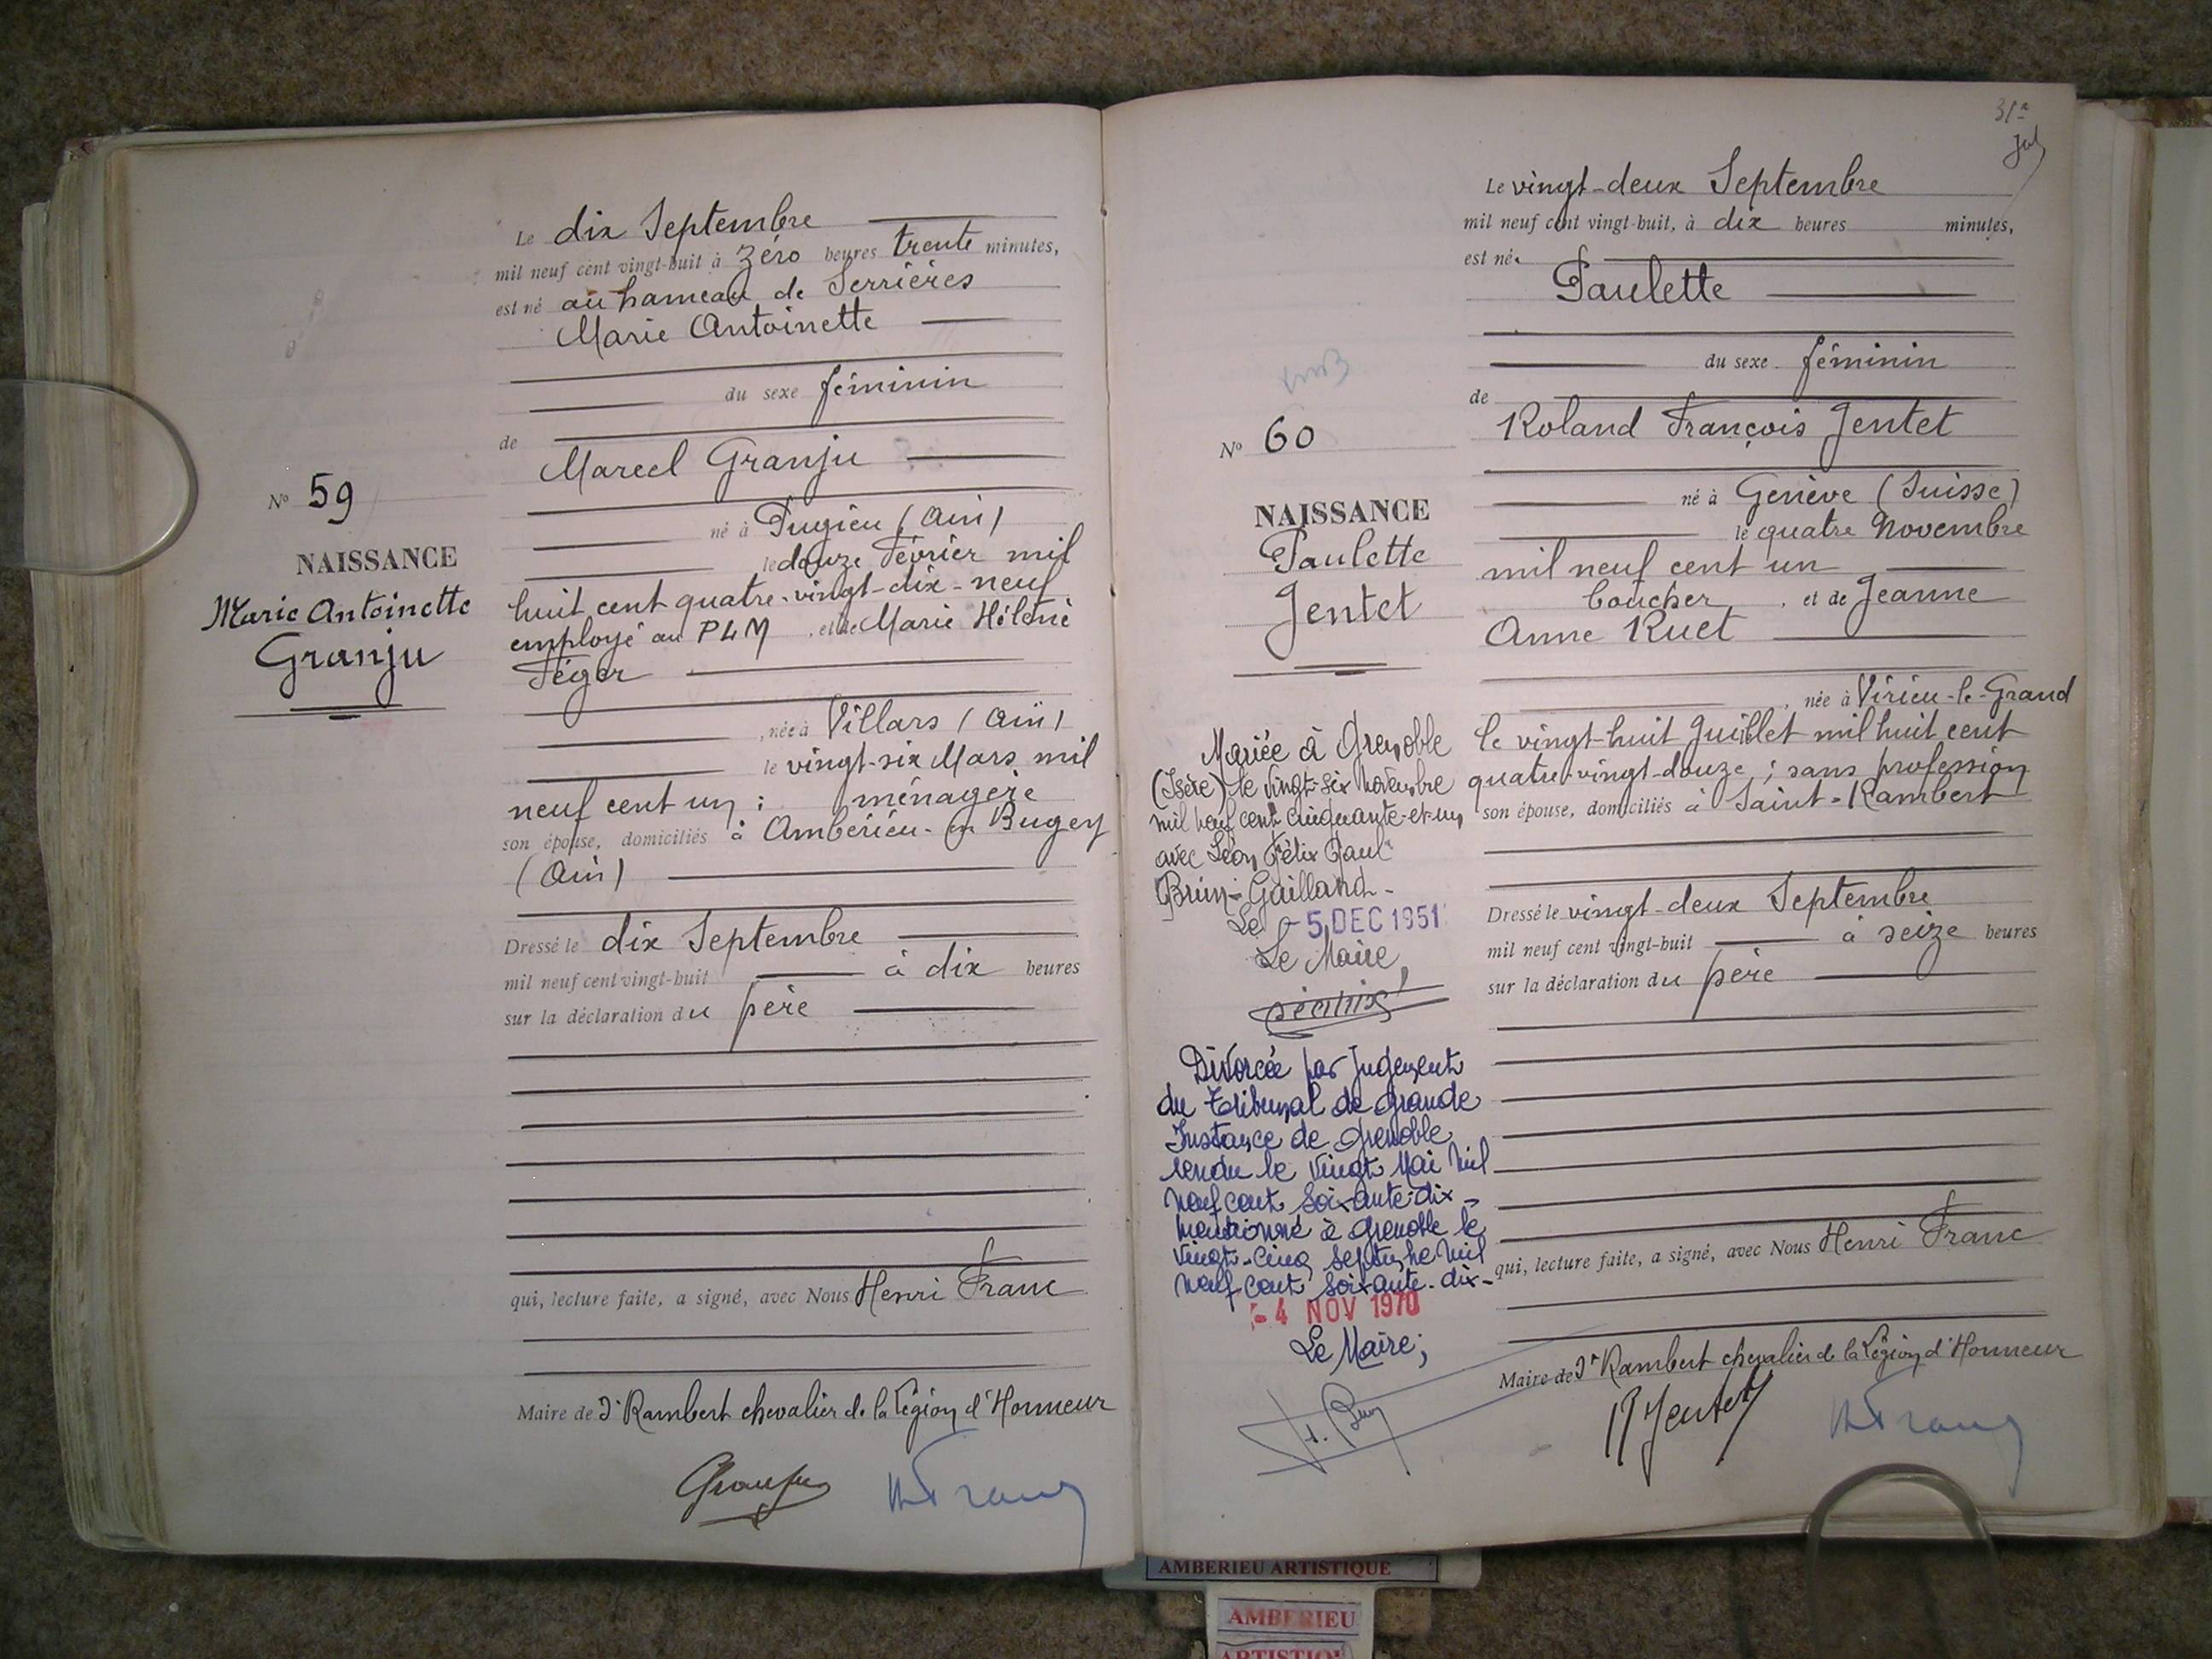 Le dix Septembre
mil neuf cent vingt-huit à zéro heures trente minutes,
est né au hameau de Serrières
Marie Antoinette
du sexe féminin
de
Marcel Granju
né à Pugieu (Ain)
le douze Février mil
huit cent quatre-vingt-dix-neuf
employé au PLM, et de Marie Hélène
Féger
, née à Villars (Ain)
le vingt-six Mars mil
neuf cent un ; ménagère
son épouse, domiciliés à Ambérieu-en Bugey
(Ain)
Dressé le dix Septembre
mil neuf cent vingt-huit à dix heures
sur la déclaration du père
qui, lecture faite, a signé, avec Nous Henri Franc
Maire de St Rambert chevalier de la Légion d'Honneur
Granju
HFranc
No 59
NAISSANCE
Marie Antoinette
Granju
31e
Le vingt-deux Septembre
mil neuf cent vingt-huit, à dix heures minutes,
est née
Paulette
du sexe féminin
de
Roland François Jentet
né à Genève (Suisse)
le quatre Novembre
mil neuf cent un
boucher, et de Jeanne
Anne Ruet
, née à Virieu-le-Grand
le vingt-huit Juillet mil huit cent
quatre-vingt-douze ; sans profession
son épouse, domiciliés à Saint-Rambert
Dressé le vingt-deux Septembre
mil neuf cent vingt-huit à seize heures
sur la déclaration du père
qui, lecture faite, a signé, avec Nous Henri Franc
Maire de St Rambert chevalier de la Légion d'Honneur
R Jentet
HFranc
No 60
NAISSANCE
Paulette
Jentet
Mariée à Grenoble
(Isère) le vingt-six novembre
mil neuf cent cinquante-et-un
avec Léon Félix Paul
Brun-Gaillard-
Le -5 DEC 1951
Le Maire,
Divorcée par Jugement
du Tribunal de Grande
Instance de Grenoble
rendu le vingt Mai mil
neuf cent soixante-dix-
mentionné à Grenoble le
vingt-cinq septembre mil
neuf cent soixante-dix-
-4 NOV 1970
Le Maire;
AMBERIEU ARTISTIQUE
AMBERIEU